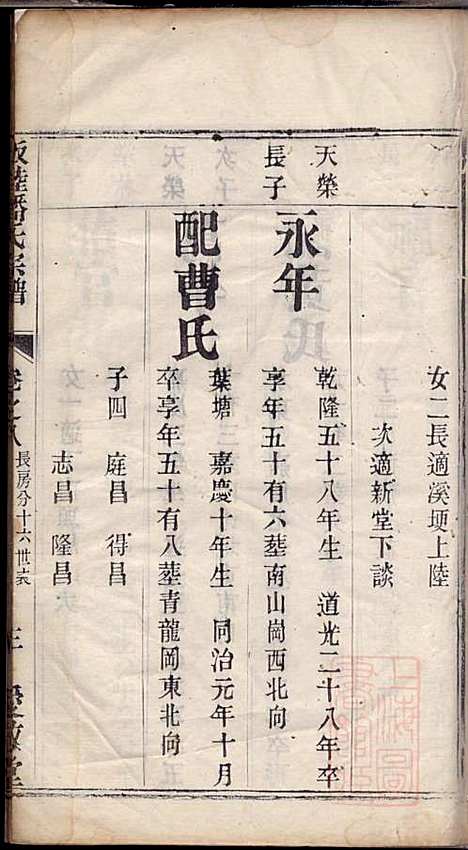 女二長適溪埂上陸
次適新堂下談
天榮
長子
永年
乾隆五十八年生 道光二十八年卒
享年五十有六塟南山崗西北向
配曹氏
葉塘 嘉慶十年生 同治元年十月
卒享年五十有八塟青龍岡東北向
子四 庭昌 得昌
志昌 隆昌
潘氏宗譜
卷之八
長房分十六世表